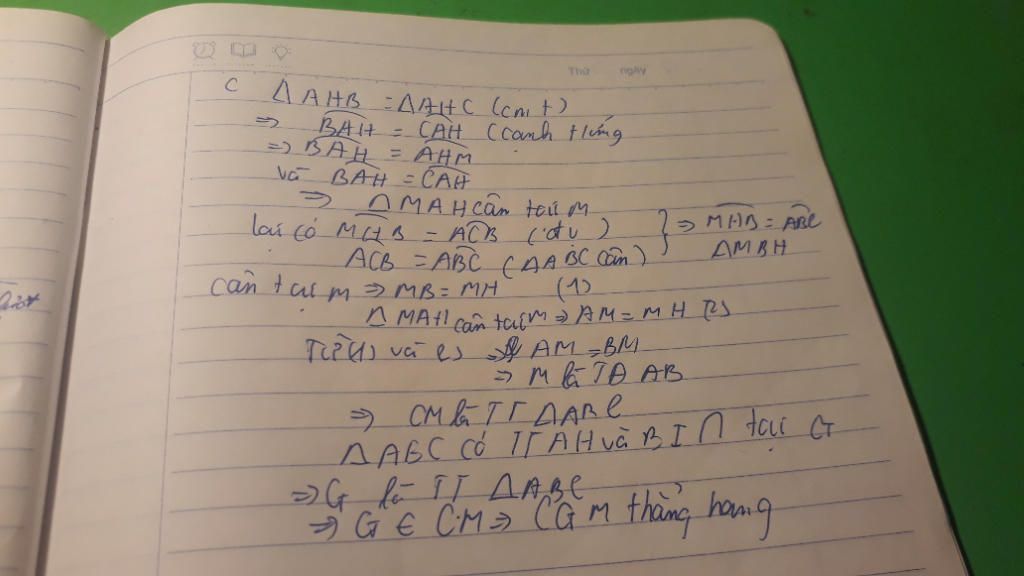 Thứ ngày
C ΔAHB = ΔAHC (cm t)
⇒ BAH = CAH (canh tứng
⇒ BAH = AHM
và BAH = CAH
⇒ ΔMAH cân tại M
lại có MHB = ACB (đv)
ACB = ABC (ΔABC cân) } ⇒ MHB = ABC
ΔMBH
cân tại M ⇒ MB = MH (1)
ΔMAH cân tại M ⇒ AM = MH (2)
Từ (1) và (2) ⇒ AM = BM
⇒ M là TĐ AB
⇒ CM là TT ΔABC
ΔABC có TT AH và BI ∩ tại G
⇒ G là TT ΔABC
⇒ G ∈ CM ⇒ CGM thẳng hang